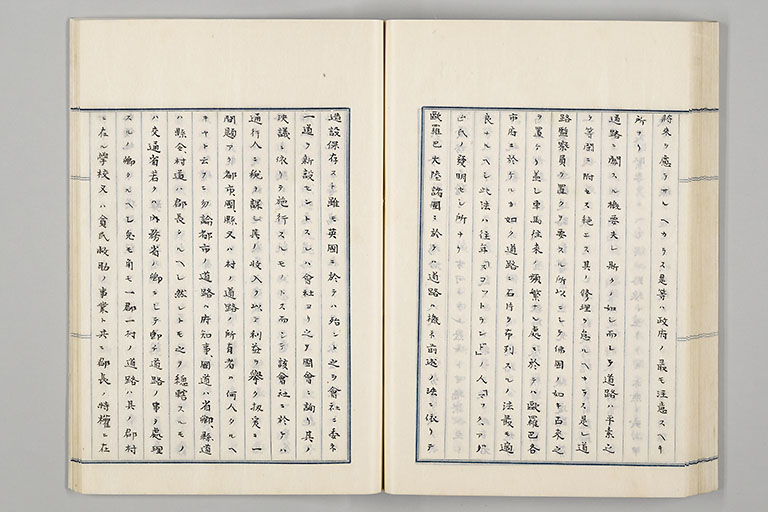 將來ヲ慮ラサルヘカラス是等ハ政府ノ最モ注意スヘキ
所ナリ
通路ニ關スル機要夫レ斯クノ如シ而シテ道路ハ平素之
ヲ等閑ニ附セス絶エス其ノ修理ヲ怠ルヘカラス是レ道
路監察員ヲ置クヲ要スル所以ニシテ佛國ノ如キ古來之
ヲ置ケリ蓋シ車馬往來ノ頻繁ナル處ニ於テハ歐羅巴各
市府ニ於ケルカ如ク道路ニ石片ヲ布列スルノ法最モ適
良ナルヘシ此法ハ往年「スコットランド」ノ人
氏ノ發明セル所ナリ
歐羅巴大陸諸國ニ於テハ道路ハ概ネ前述ノ法ニ依リテ
造設保存スト雖モ英國ニ於テハ殆ント之ヲ會社ニ委ネ
一道ヲ新設セントスレハ會社ヨリ之ヲ國會ニ詢リ其ノ
決議ニ依リテ施行スルモノトス而シテ該會社ニ於テハ
通行人ニ税ヲ課シ其ノ收入ヲ以テ利益ヲ擧ク扨爰ニ一
問題アリ都市、國、縣又ハ村ノ道路ノ所有者ハ何人タルヘ
キヤト云フニ勿論都市ノ道路ハ府知事、國道ハ省卿、縣道
ハ縣令、村道ハ郡長タルヘシ然レトモ之ヲ總轄スルモノ
ハ交通省若クハ内務省ノ卿ニシテ都テ道路ノ事ヲ處理
スルノ卿タルヘシ兔モ角モ一郡一村ノ道路ハ其ノ郡村
ニ在ル學校又ハ貧民救助ノ事業ト共ニ郡長ノ特權ニ在